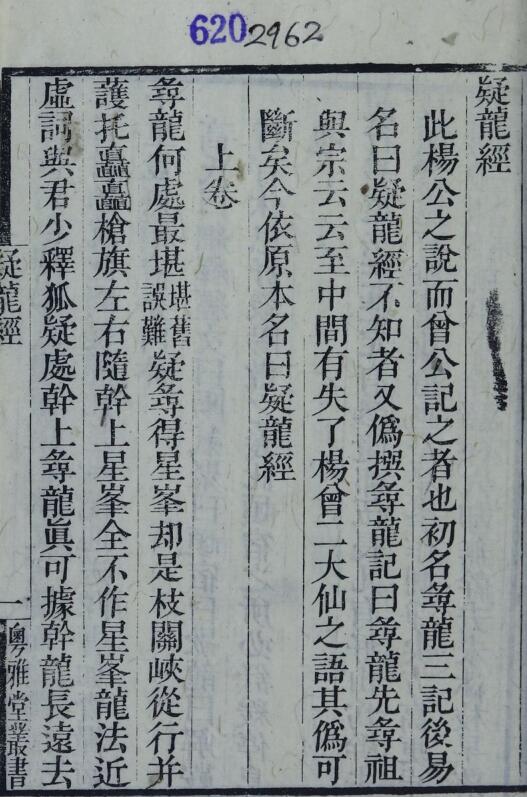 620 2962
疑龍經
此楊公之說而曾公記之者也初名尋龍三記後易
名曰疑龍經不知者又僞撰尋龍記曰尋龍先尋祖
與宗云云至中間有失了楊曾二大仙之語其僞可
斷矣今依原本名曰疑龍經
上卷
尋龍何處最堪堪舊誤難疑尋得星峯却是枝關峽從行并
護托矗矗槍旗左右隨幹上星峯全不作星峯龍法近
虛詞與君少釋狐疑處幹上尋龍眞可據幹龍長遠去
疑龍經
一
粵雅堂叢書